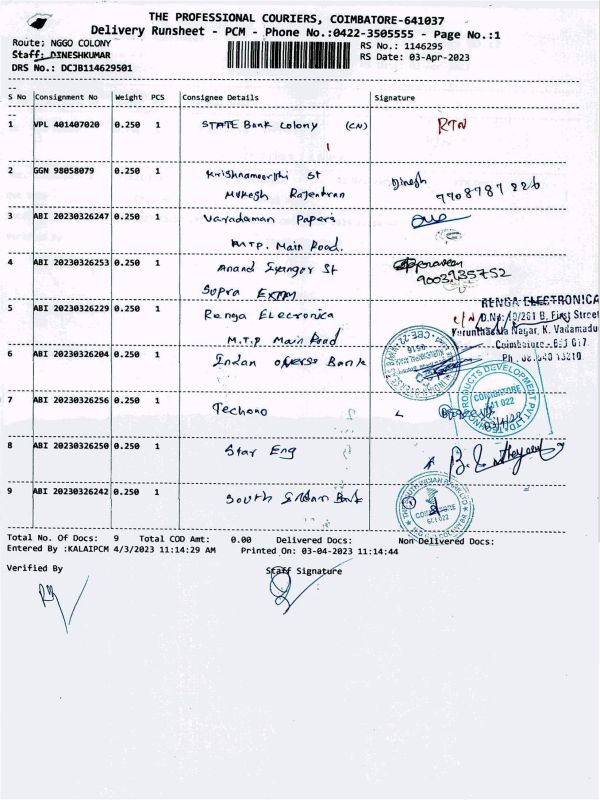 THE PROFESSIONAL COURIERS, COIMBATORE-641037
Delivery Runsheet - PCM - Phone No.:0422-3505555 - Page No.:1
Route: NGGO COLONY
RS No.: 1146295
Staff: DINESHKUMAR
RS Date: 03-Apr-2023
DRS No.: DCJB114629501
S No Consignment No Weight PCS Consignee Details Signature
1 VPL 401407020 0.250 1 STATE Bank Colony (CN) RTN
2 GGN 98058079 0.250 1 Krishnamoorthi St
Mukesh Rajentran
Dinesh
7708787226
3 ABI 20230326247 0.250 1 Varadaman Papers
M.T.P. Main Road.
4 ABI 20230326253 0.250 1 Anand Iyangar St
Supra
praveen
9003935752
5 ABI 20230326229 0.250 1 Renga Electronica
M.T.P Main Road
RENGA ELECTRONICA
D.No: 10/261 B, First Street
Nagar, K. Vadamadu
Coimbatore - 
6 ABI 20230326204 0.250 1 Indian overse Bank
7 ABI 20230326256 0.250 1 Techono
PRODUCTS DEVELOPMENT PVT LTD
COIMBATORE
641 022
8 ABI 20230326250 0.250 1 Star Eng
9 ABI 20230326242 0.250 1 South Indan Bank
COIMBATORE
641 022
Total No. Of Docs: 9 Total COD Amt: 0.00 Delivered Docs: Non Delivered Docs:
Entered By :KALAIPCM 4/3/2023 11:14:29 AM Printed On: 03-04-2023 11:14:44
Verified By Staff Signature